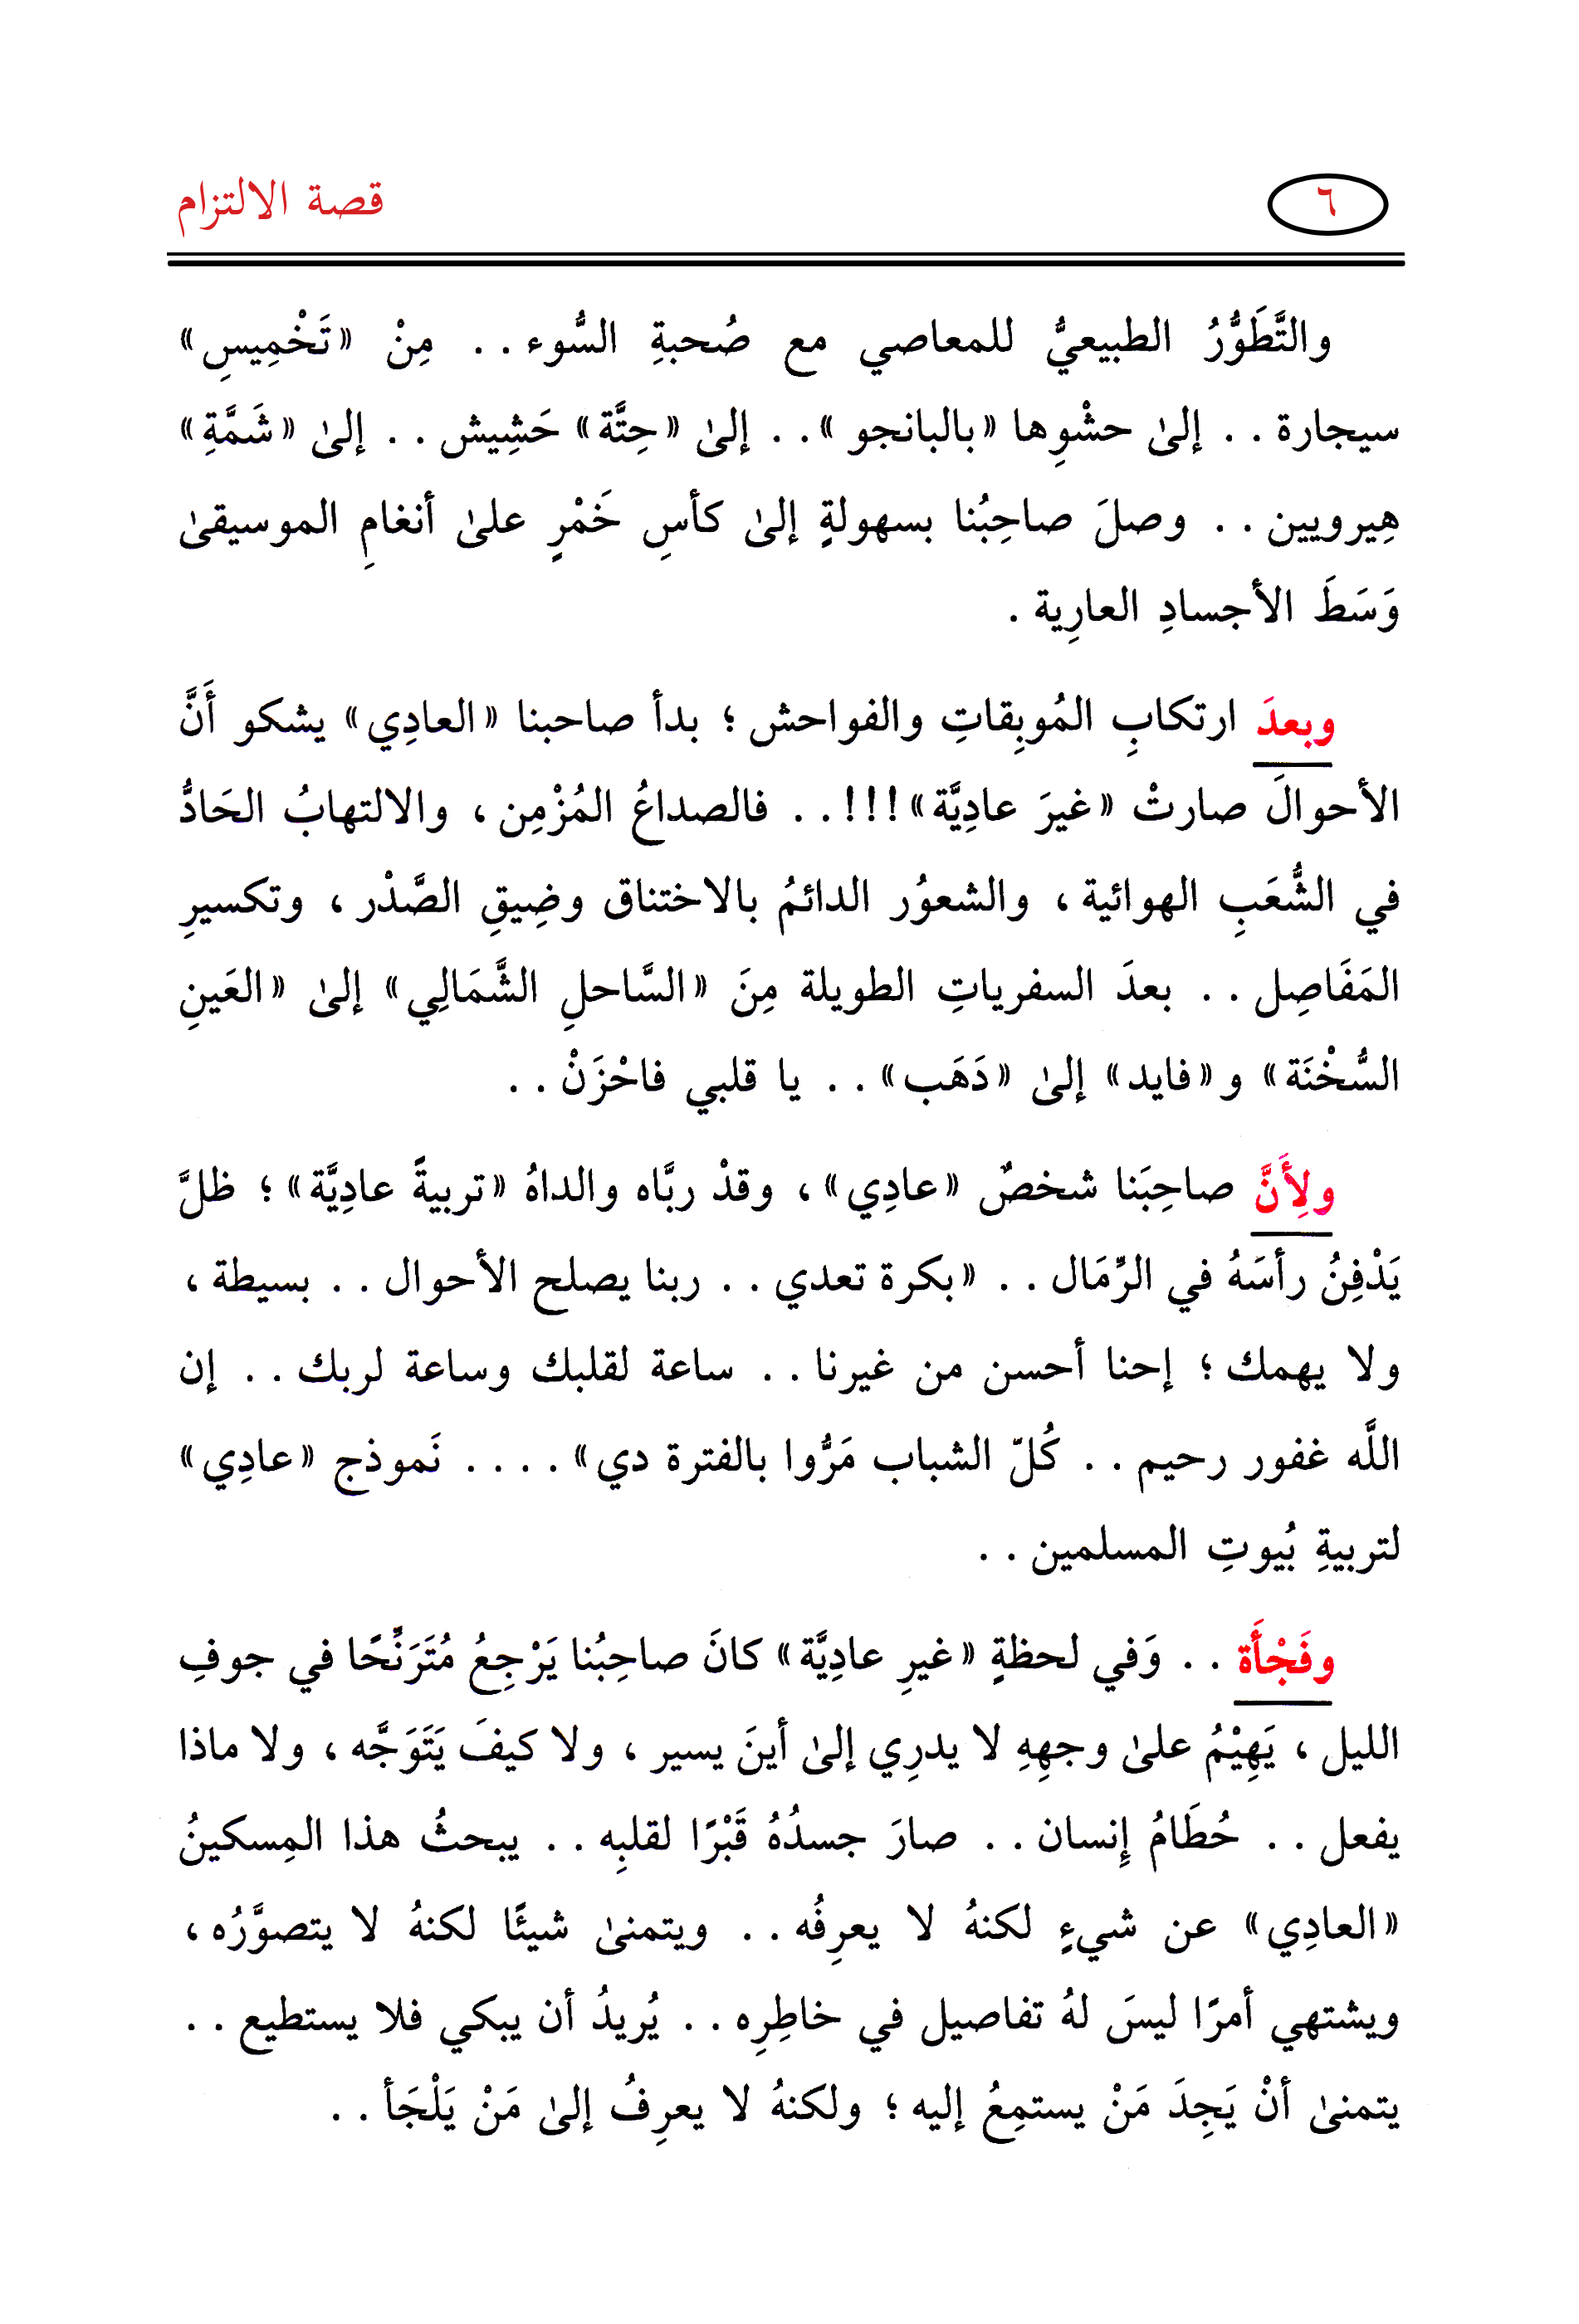 ٦
قصة الالتزام
والتَّطَوُّرُ الطبيعيُّ للمعاصي مع صُحبةِ السُّوء . . مِنْ «تَخْمِيسِ»
سيجارة . . إلىٰ حشْوِها «بالبانجو» . . إلىٰ «حِتَّة» حَشِيش . . إلىٰ «شَمَّةِ»
هِيرويين . . وصلَ صاحِبُنا بسهولةٍ إلىٰ كأسِ خَمْرٍ علىٰ أنغامِ الموسيقىٰ
وَسَطَ الأجسادِ العارِية .
وبعدَ ارتكابِ المُوبِقاتِ والفواحش ؛ بدأ صاحبنا «العادِي» يشكو أَنَّ
الأحوالَ صارتْ «غيرَ عادِيَّة»!!! . . فالصداعُ المُزْمِن ، والالتهابُ الحَادُّ
في الشُّعَبِ الهوائية ، والشعوُر الدائمُ بالاختناق وضِيقِ الصَّدْر ، وتكسيرِ
المَفَاصِل . . بعدَ السفرياتِ الطويلة مِنَ «السَّاحلِ الشَّمَالِي» إلىٰ «العَينِ
السُّخْنَة» و«فايد» إلىٰ «دَهَب» . . يا قلبي فاحْزَنْ . .
ولِأَنَّ صاحِبَنا شخصٌ «عادِي» ، وقدْ ربَّاه والداهُ «تربيةً عادِيَّة» ؛ ظلَّ
يَدْفِنُ رأسَهُ في الرِّمَال . . «بكرة تعدي . . ربنا يصلح الأحوال . . بسيطة ،
ولا يهمك ؛ إحنا أحسن من غيرنا . . ساعة لقلبك وساعة لربك . . إن
اللَّه غفور رحيم . . كُلّ الشباب مَرُّوا بالفترة دي» . . . . نَموذج «عادِي»
لتربيةِ بُيوتِ المسلمين . .
وفَجْأَة . . وَفي لحظةٍ «غيرِ عادِيَّة» كانَ صاحِبُنا يَرْجِعُ مُتَرَنِّحًا في جوفِ
الليل ، يَهِيْمُ علىٰ وجهِهِ لا يدرِي إلىٰ أينَ يسير ، ولا كيفَ يَتَوَجَّه ، ولا ماذا
يفعل . . حُطَامُ إِنسان . . صارَ جسدُهُ قَبْرًا لقلبِه . . يبحثُ هذا المِسكينُ
«العادِي» عن شيءٍ لكنهُ لا يعرِفُه . . ويتمنىٰ شيئًا لكنهُ لا يتصوَّرُه ،
ويشتهي أمرًا ليسَ لهُ تفاصيل في خاطِرِه . . يُريدُ أن يبكي فلا يستطيع . .
يتمنىٰ أنْ يَجِدَ مَنْ يستمِعُ إليه ؛ ولكنهُ لا يعرِفُ إلىٰ مَنْ يَلْجَأ . .